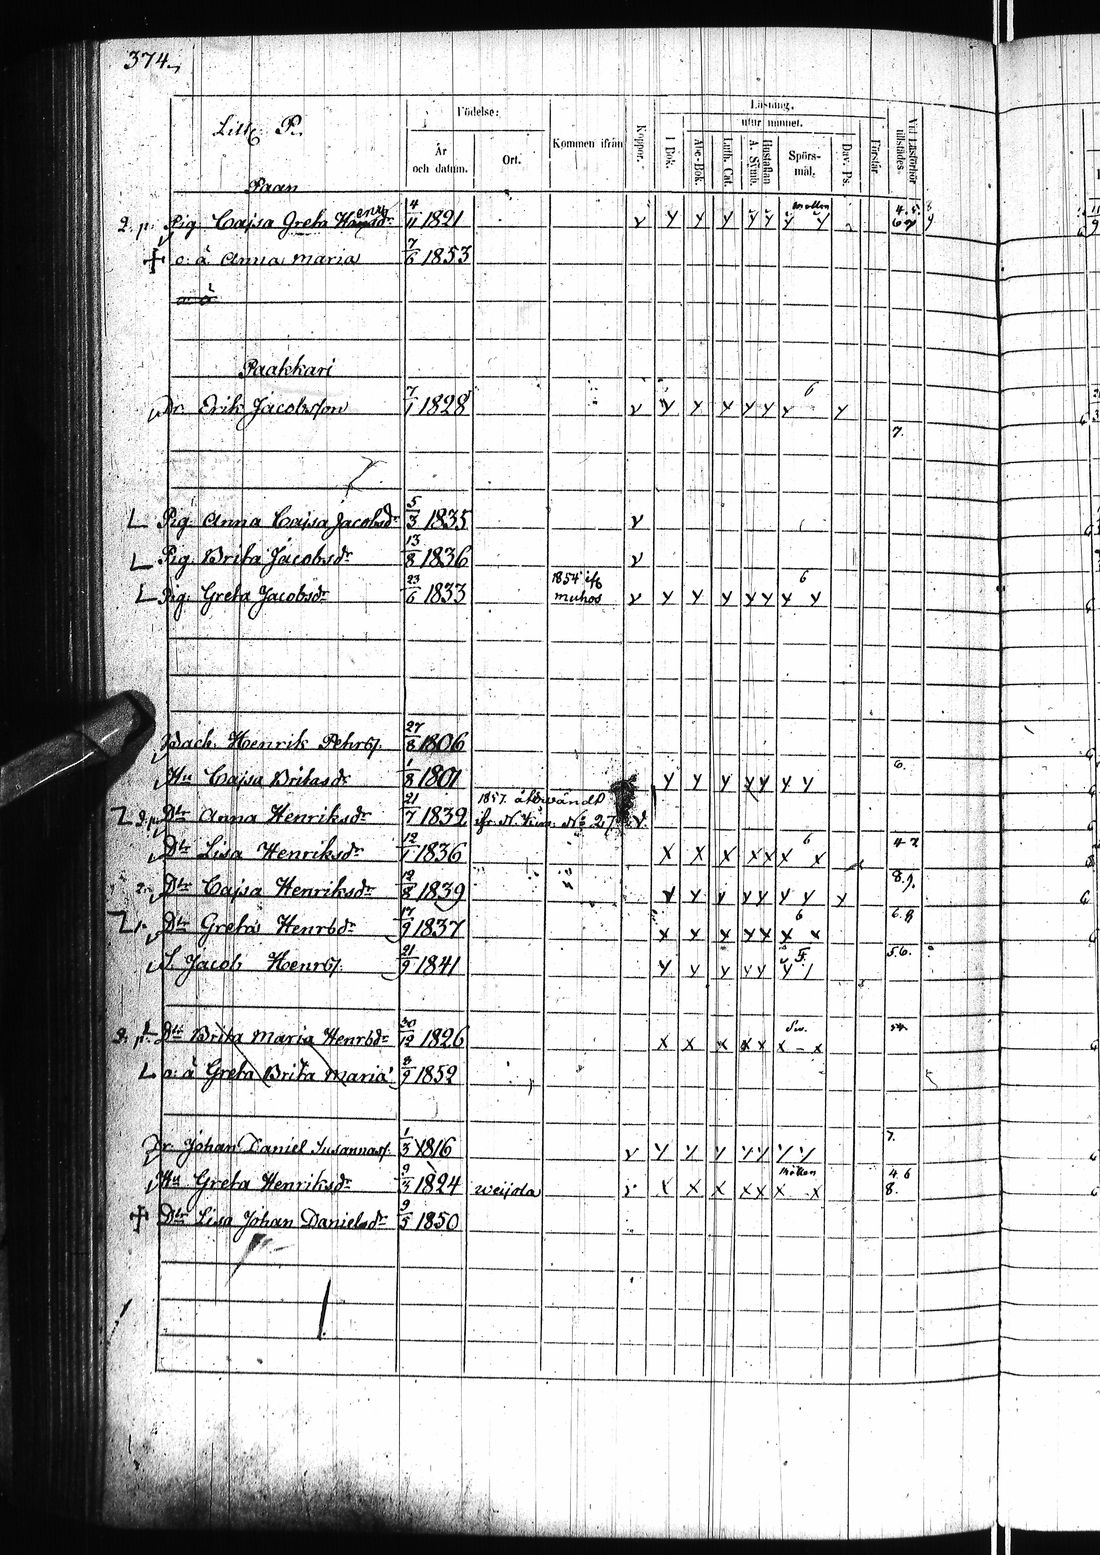 374.
Litt. P.
Födelse:
År och datum.
Ort.
Kommen ifrån
Koppor.
Läsning,
utur minnet.
I Bok.
Abc-Bok.
Luth. Cat.
Hustaflan A. Symb.
Spörs-mål.
Dav. Ps.
Förstår
Vid Läsförhör tillstädes.
Paan
2. p. Pig. Cajsa Greta Henrsdr 4/11 1821 v y y y y y y y 4. 5. 6 7
o: ä Anna Maria 7/6 1853
o: ä
Paakkari
Dr. Erik Jacobsson 7/1 1828 v y y y y y y 6 y
7.
L Pig. Anna Cajsa Jacobsdr 5/3 1835 v
L Pig. Brita Jacobsdr 13/8 1836 v
L Pig. Greta Jacobsdr 23/6 1833 1854 ifr Muhos v y y y y y y y 6
Bach. Henrik Pehrss. 27/8 1806
6.
Hu Cajsa Britasdr 1/8 1801 y y y y y y y
Dtr Anna Henriksdr 21/7 1832 1857. återvändt fr. N. Kim. No 27
Dtr Lisa Henriksdr 12/1 1836 x x x x x x x 6 4 7
2. Dtr Cajsa Henriksdr 12/8 1839 y y y y y y y y 8. 9.
Dtr Greta Henrsdr 17/9 1837 x x x x x x x 6 6. 8
S. Jacob Henrss. 21/9 1841 y y y y y y / F. 5. 6.
Dtr Brita Maria Henrsdr 30/12 1826 x x x x x x - x
L o: ä Greta Brita Maria 3/9 1852
7.
Dr. Johan Daniel Susannass. 1/3 1816 v y y y y y y y
Hu Greta Henriksdr 9/3 1824 Weijola v x x x x x x x 4 6 8.
Dtr Lisa Johan Danielsdr 9/5 1850